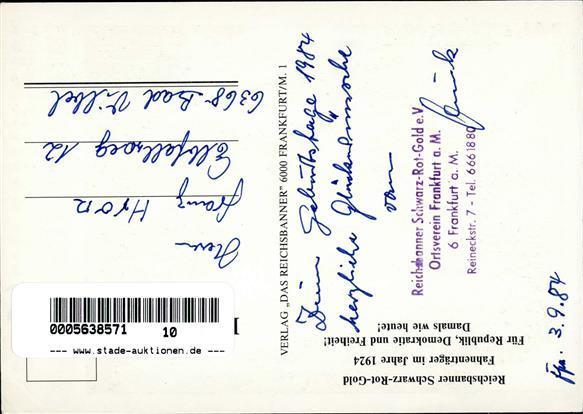 Reichsbanner Schwarz-Rot-Gold
Fahnenträger im Jahre 1924
Für Republik, Demokratie und Freiheit!
Damals wie heute!
VERLAG „DAS REICHSBANNER" 6000 FRANKFURT/M. 1
Ffm. 3.9.84
Zum Geburtstage 1984
herzliche Glückwünsche
vom
Reichsbanner Schwarz-Rot-Gold e.V.
Ortsverein Frankfurt a. M.
6 Frankfurt a. M.
Reineckstr. 7 - Tel. 6661880
Herrn
Franz Hron
12
6368 Bad Vilbel
0005638571 10
--- www.stade-auktionen.de ---